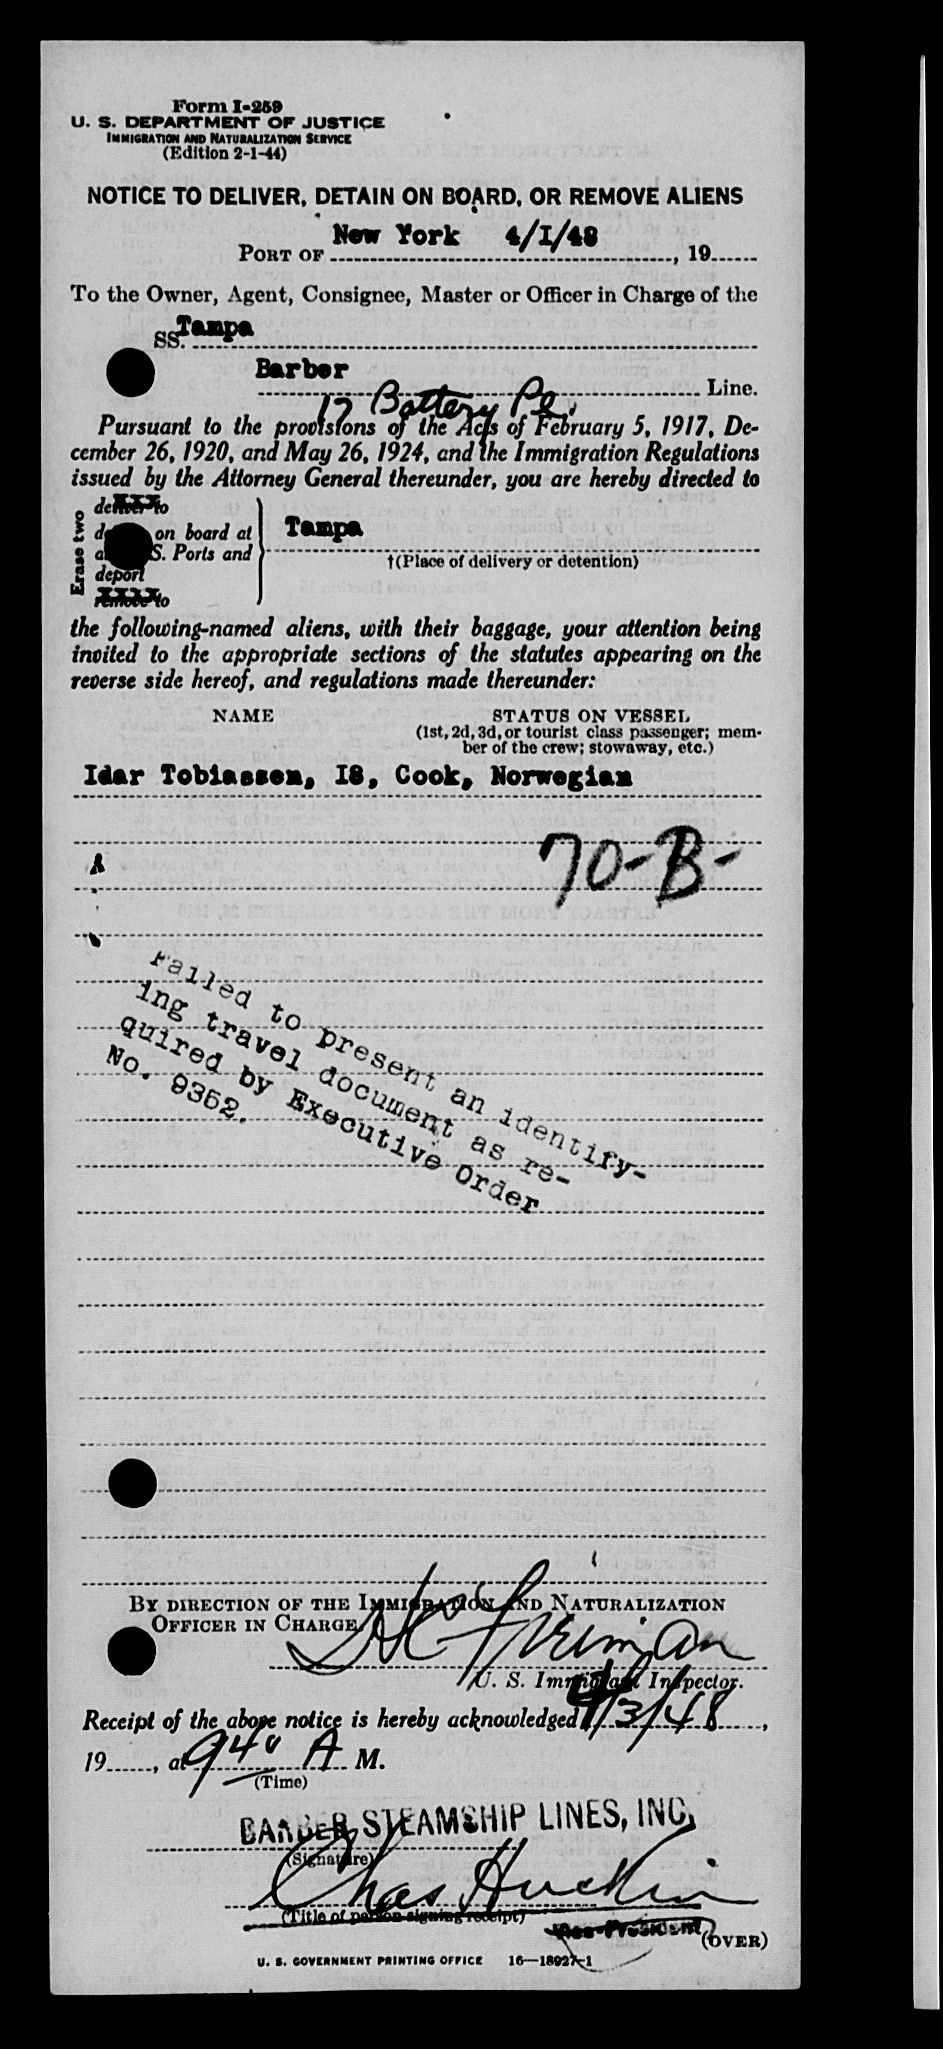 Form I-259
U. S. DEPARTMENT OF JUSTICE
IMMIGRATION AND NATURALIZATION SERVICE
(Edition 2-1-44)
NOTICE TO DELIVER, DETAIN ON BOARD, OR REMOVE ALIENS
New York 4/I/48
PORT OF , 19
To the Owner, Agent, Consignee, Master or Officer in Charge of the
SS. Tampa
Barber Line.
17 Battery Pl.
Pursuant to the provisions of the Acts of February 5, 1917, De-
cember 26, 1920, and May 26, 1924, and the Immigration Regulations
issued by the Attorney General thereunder, you are hereby directed to
Erase two
deliver to
on board at
S. Ports and
deport
remove to
Tampa
†(Place of delivery or detention)
the following-named aliens, with their baggage, your attention being
invited to the appropriate sections of the statutes appearing on the
reverse side hereof, and regulations made thereunder:
NAME STATUS ON VESSEL
(1st, 2d, 3d, or tourist class passenger; mem-
ber of the crew; stowaway, etc.)
Idar Tobiassen, I8, Cook, Norwegian
70-B-
Failed to present an identify-
ing travel document as re-
quired by Executive Order
No. 9352.
BY DIRECTION OF THE IMMIGRATION AND NATURALIZATION
OFFICER IN CHARGE
U. S. Immigrant Inspector.
Receipt of the above notice is hereby acknowledged 4/3/48,
19, at 9 40 A M.
(Time)
BARBER STEAMSHIP LINES, INC.
(Signature)
Chas Huckin
(Title of person signing receipt)
Vice-President
(OVER)
U. S. GOVERNMENT PRINTING OFFICE 16—18927-1